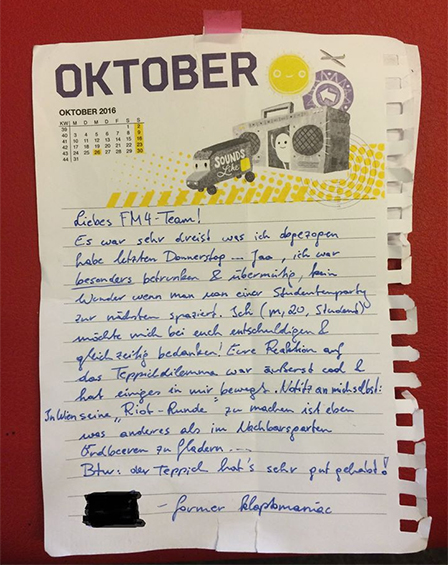 OKTOBER
OKTOBER 2016
KW M D M D F S S
39 1 2
40 3 4 5 6 7 8 9
41 10 11 12 13 14 15 16
42 17 18 19 20 21 22 23
43 24 25 26 27 28 29 30
44 31
SOUNDS
Like
Liebes FM4-Team!
Es war sehr dreist was ich abgezogen
habe letzten Donnerstag... Jaa, ich war
besonders betrunken & übermütig, kein
Wunder wenn man von einer Studentenparty
zur nächsten spaziert. Ich (m, 20, Student)
möchte mich bei euch entschuldigen &
gleichzeitig bedanken! Eure Reaktion auf
das Teppichdilemma war äußerst cool &
hat einiges in mir bewegt. Notitz an mich selbst:
In Wien seine "Riot-Runde" zu machen ist eben
was anderes als im Nachbarsgarten
Erdbeeren zu fladern....
Btw: der Teppich hat's sehr gut gehabt!
- former kleptomaniac